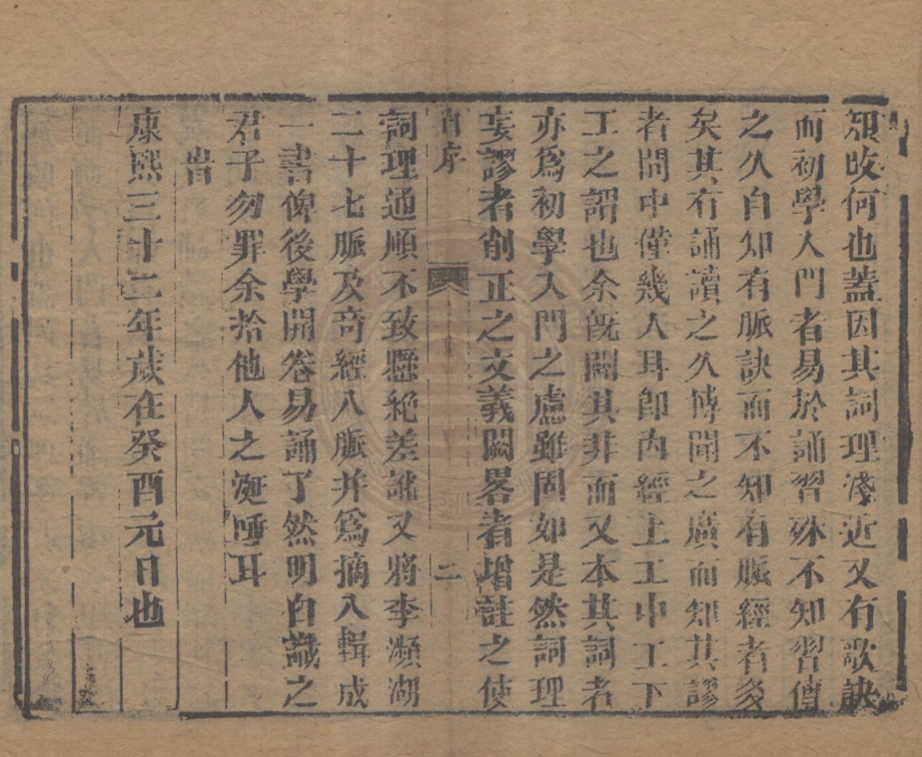 頍攻何也蓋因其詞理淺近又有歌訣
而初學入門者易於誦習殊不知習傳
之久自知有脈訣而不知有脈經者多
矣其有誦讀之久博聞之廣而知其謬
者間中僅幾人耳卽內經上工中工下
工之謂也余旣闢其非而又本其詞者
亦爲初學入門之慮雖固如是然詞理
妄謬者削正之文義闕畧者增註之使
自序
二
詞理通順不致懸絕差訛又將李瀕湖
二十七脈及奇經八脈并爲摘入輯成
一書俾後學開卷易誦了然明白識之
君子勿罪余拾他人之涎唾耳
旹
康熙三十二年歲在癸酉元日也